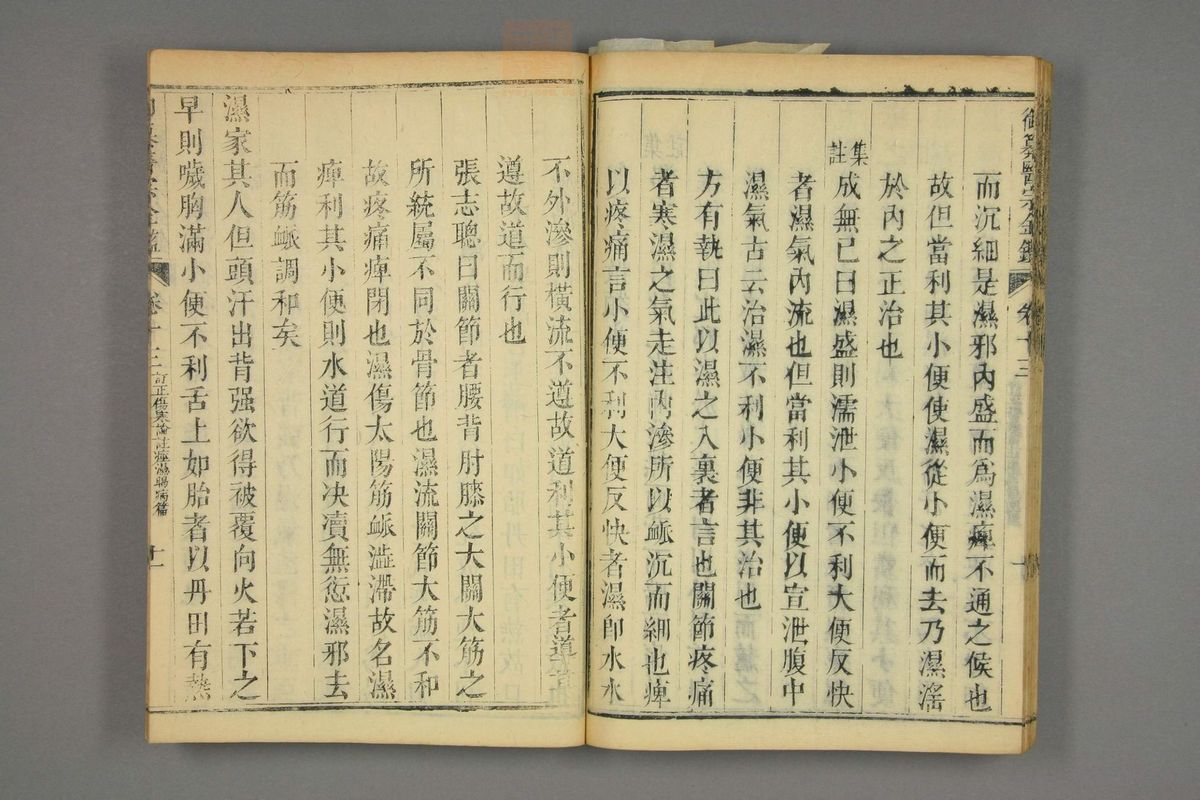 御纂醫宗金鑑 卷十三
而沉細是濕邪內盛而爲濕痺不通之候也
故但當利其小便使濕從小便而去乃濕滛
於內之正治也
集註
成無已曰濕盛則濡泄小便不利大便反快
者濕氣內流也但當利其小便以宣泄腹中
濕氣古云治濕不利小便非其治也
方有執曰此以濕之入裏者言也關節疼痛
者寒濕之氣走注內滲所以𧖴沉而細也痺
以疼痛言小便不利大便反快者濕卽水水
不外滲則橫流不遵故道利其小便者導其
遵故道而行也
張志聰曰關節者腰背肘膝之大關大筋之
所統屬不同於骨節也濕流關節大筋不和
故疼痛痺閉也濕傷太陽筋𧖴澁滯故名濕
痺利其小便則水道行而决瀆無愆濕邪去
而筋𧖴調和矣
濕家其人但頭汗出背强欲得被覆向火若下之
早則噦胸滿小便不利舌上如胎者以丹田有熱
卷十三 訂正傷寒論註痙濕暍病篇 十一